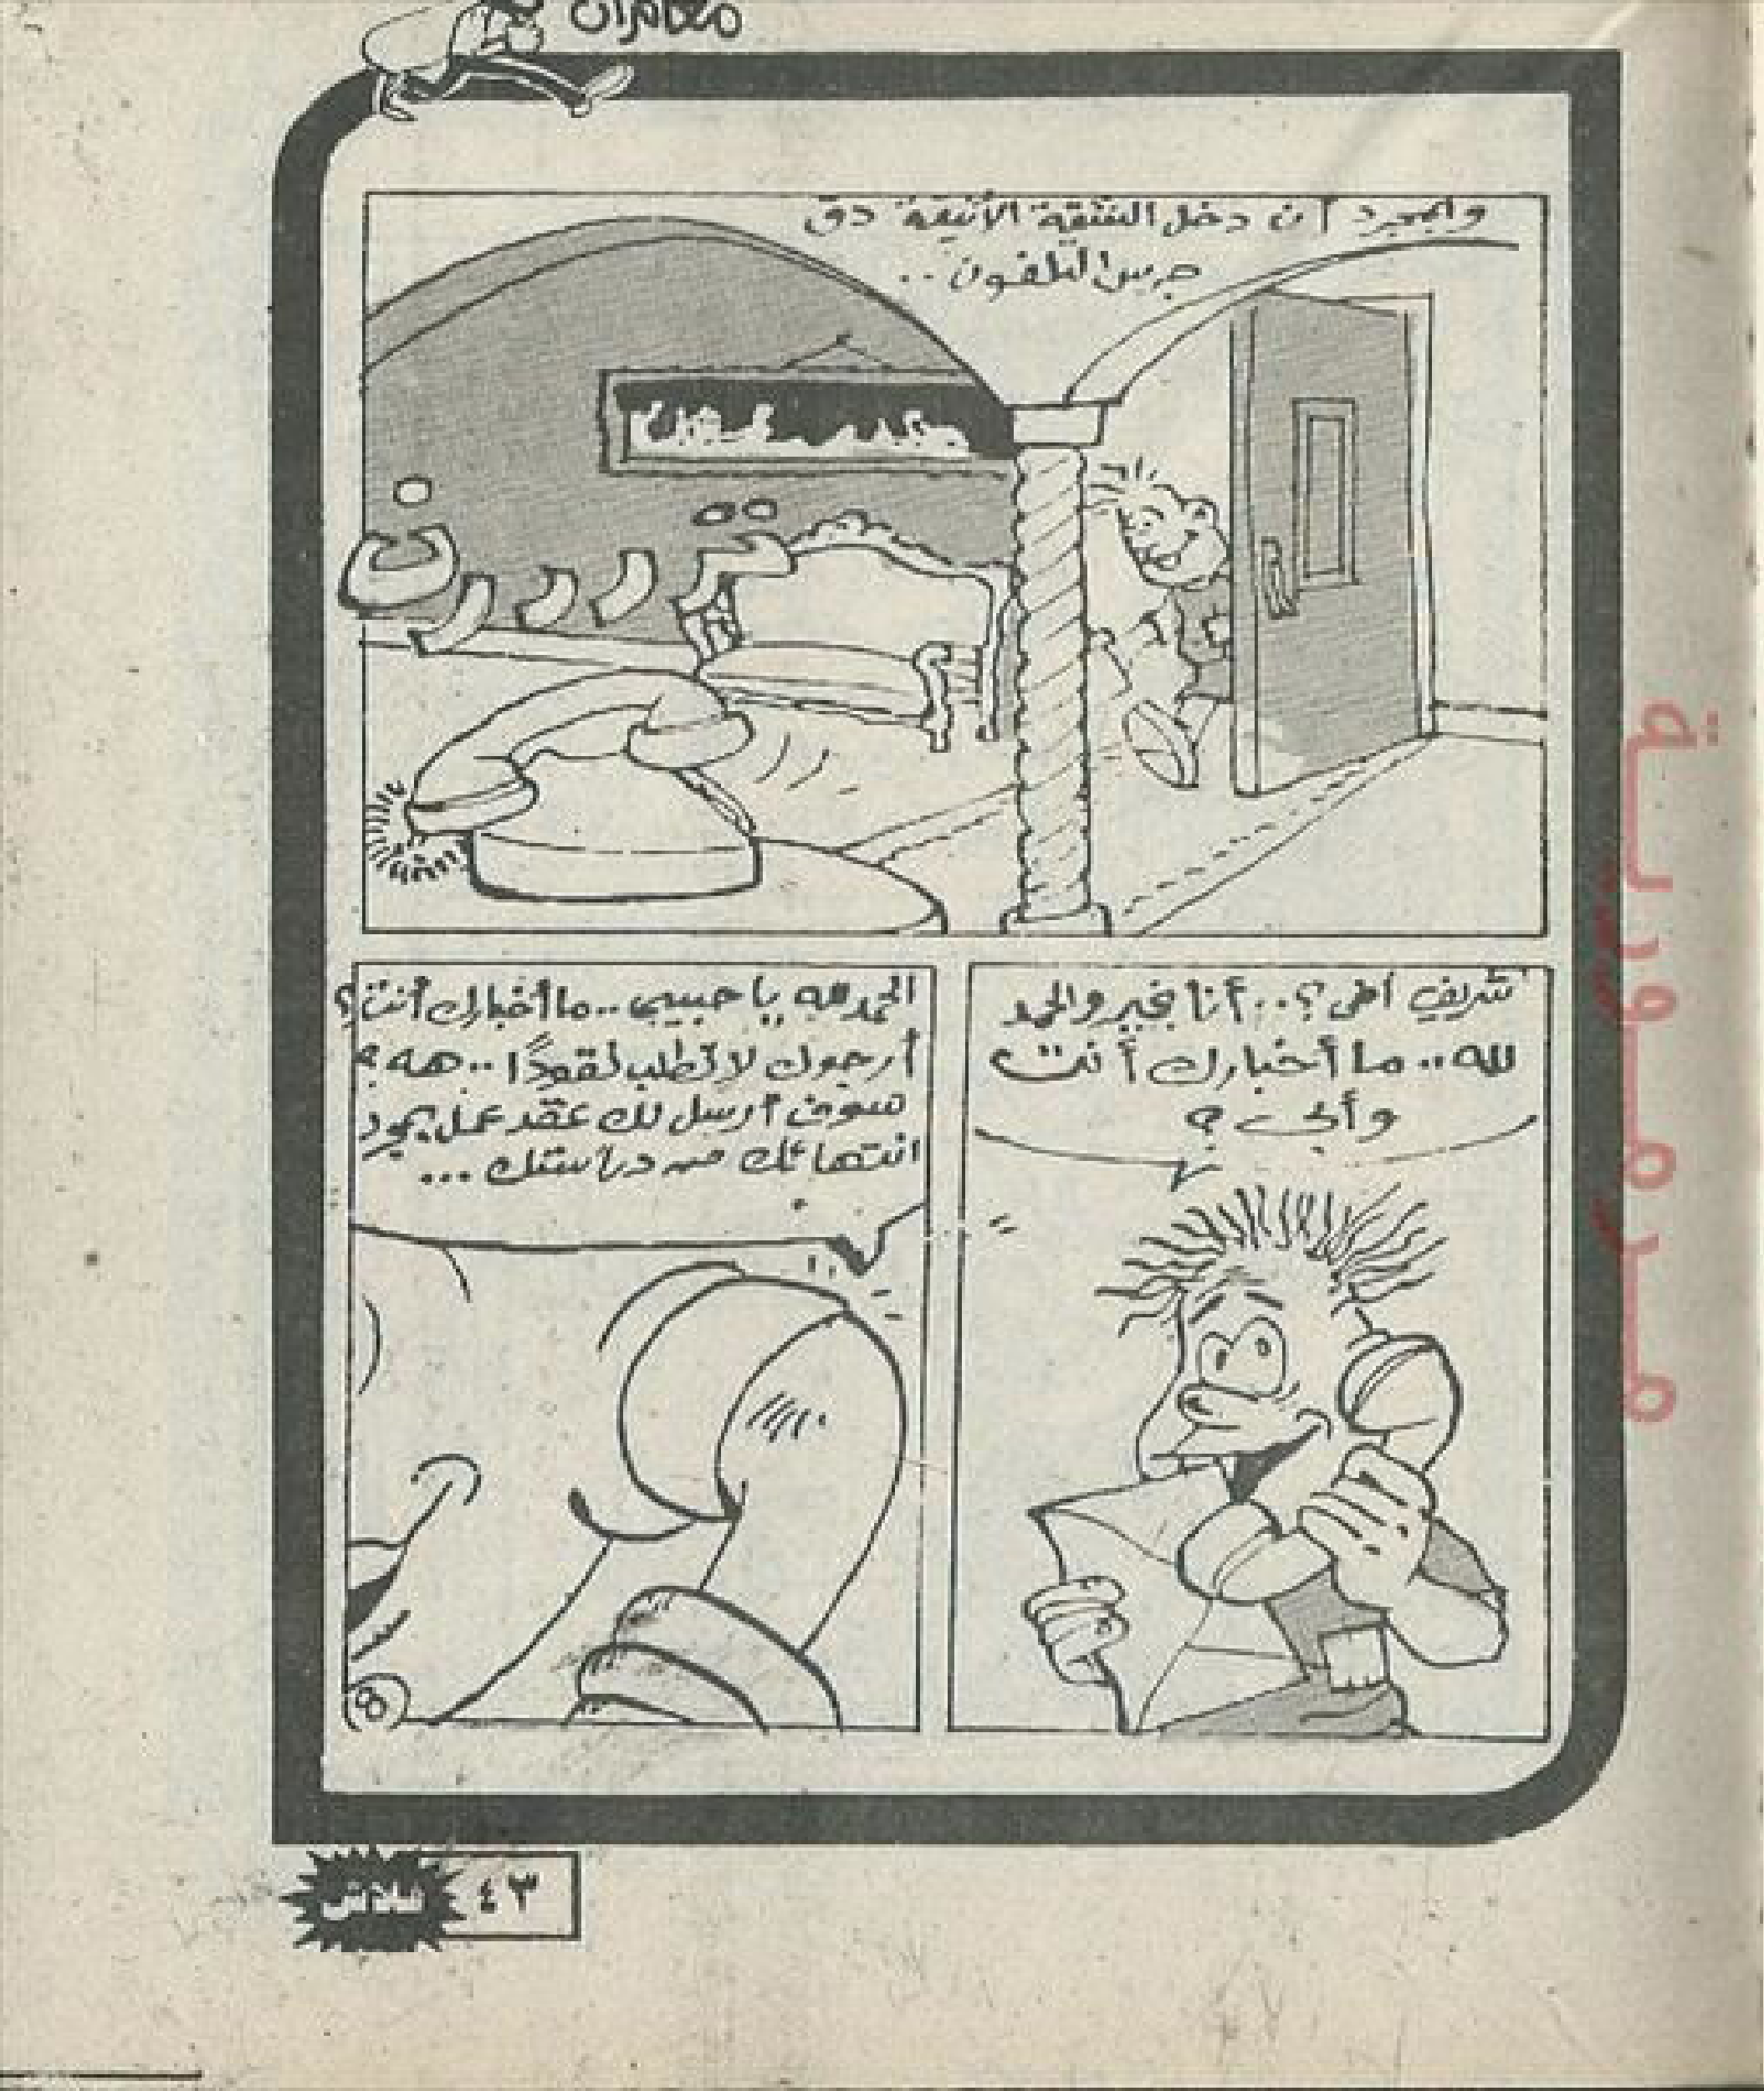 مغامرات
وبمجرد أن دخل الشقة الأنيقة دق
جرس التلفون ..
ترررررن
شريف أخى ؟.. أنا بخير والحمد
لله.. ما أخبارك أنت
وأبى ؟
الحمد لله يا حبيبى .. ما أخبارك أنت ؟
أرجوك لا تطلب نقودًا .. هه ؟
سوف أرسل لك عقد عمل بمجرد
انتهائك من دراستك ...
8
فلاش
٤٣